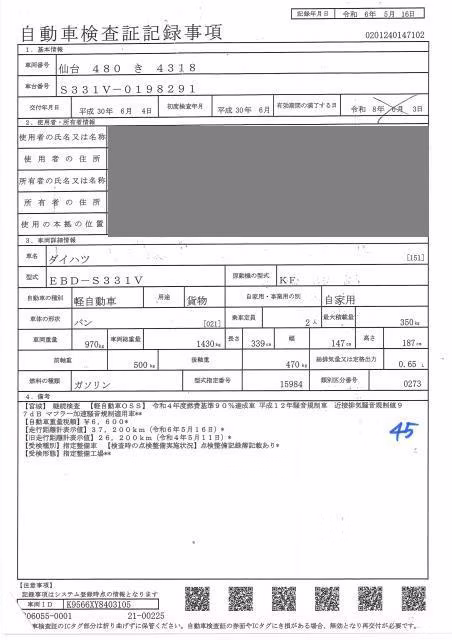 記録年月日 令和 6年 5月 16日
自動車検査証記録事項
0201240147102
1. 基本情報
車両番号 仙台 480 き 4318
車台番号 S331V-0198291
交付年月日 平成 30年 6月 4日 初度検査年月 平成 30年 6月 有効期間の満了する日 令和 8年 6月 3日
2. 使用者・所有者情報
使用者の氏名又は名称
使用者の住所
所有者の氏名又は名称
所有者の住所
使用の本拠の位置
3. 車両詳細情報
車名 ダイハツ [151]
型式 EBD-S331V 原動機の型式 KF
自動車の種別 軽自動車 用途 貨物 自家用・事業用の別 自家用
車体の形状 バン [021] 乗車定員 2人 最大積載量 350kg
車両重量 970kg 車両総重量 1430kg 長さ 339cm 幅 147cm 高さ 187cm
前軸重 500kg 後軸重 470kg 総排気量又は定格出力 0.65L
燃料の種類 ガソリン 型式指定番号 15984 類別区分番号 0273
4. 備考
【宮城】 継続検査 【軽自動車OSS】 令和4年度燃費基準90%達成車 平成12年騒音規制車 近接排気騒音規制値9
7dB マフラー加速騒音規制適用車**
【自動車重量税額】¥6,600*
【走行距離計表示値】37,200km(令和6年5月16日)*
【旧走行距離計表示値】26,200km(令和4年5月11日)*
【受検種別】指定整備車 【検査時の点検整備実施状況】点検整備記録簿記載あり*
【受検形態】指定整備工場**
45
【注意事項】
記録事項はシステム登録時点の情報となります
車両ID K9566XY8403105
06055-0001 21-00225
車検査証のICタグ部分は折り曲げずに保管ください。自動車検査証の券面やICタグに き損がある場合、無効となり再交付が必要です。